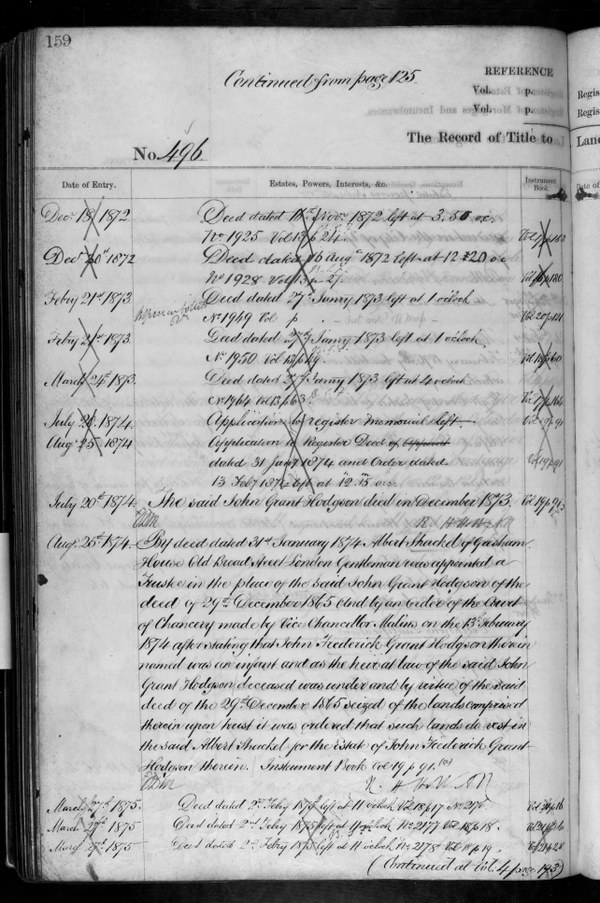 159
Continued from page 125.
REFERENCE
Vol. p.
Vol. p.
The Record of Title to
Land
Regis
Regis
No. 496
Date of Entry.
Estates, Powers, Interests, &c.
Instrument Book.
Date of
Decr 18th 1872 Deed dated Novr 1872 left at 3.50 o.c.
No 1925 Vol 13 p 24.
Decr 20th 1872 Deed dated 16 Augt 1872 left at 12 20 o c
No 1928 Vol 13 p 27.
Febry 21st 1873. Deed dated 27th Janry 1873 left at 1 o'clock
No 1949 Vol p
Febry 21st 1873. Deed dated 27th Janry 1873 left at 1 o'clock,
No 1950 Vol 13 p 49
March 24th 1873. Deed dated 27th Janry 1873 left at 4 o'clock
No 1964 Vol 13 p 63
July 20 1874. Application to register memorial left
Augt 25th 1874 Application to Register Deed of Appoint
dated 31 Janry 1874 and Order dated
13 Feby 1874 left at 12.15 o.c.
July 20th 1874. The said John Grant Hodgson died in December 1873. Vol 19 p
Augt 25th 1874. By deed dated 31st January 1874 Albert Shackel of Gresham
House Old Broad Street London Gentleman was appointed a
Trustee in the place of the said John Grant Hodgson of the
deed of 29th December 1865 And by an Order of the Court
of Chancery made by Vice Chancellor Malins on the 13th February
1874 after stating that John Frederick Grant Hodgson therein
named was an infant and as the heir at law of the said John
Grant Hodgson deceased was under and by virtue of the said
deed of the 29th December 1865 seized of the lands comprised
therein upon trust it was ordered that such lands do vest in
the said Albert Shackel for the Estate of John Frederick Grant
Hodgson therein. Instrument Book Vol 19 p 91.
March 2nd 1875. Deed dated 2nd Febry 1875 left at 11 o'clock, Vol 18 p 17 No 2176. Vol 21 p 16
March 2nd 1875 Deed dated 2nd Febry 1875 left at 11 o'clock, No 2177 Vol 18 p 18.
March 2nd 1875 Deed dated 2nd Febry 1875 left at 11 o'clock, No 2178 Vol 18 p 19. Vol 21 p 28
(Continued at Vol. 4 page 193)